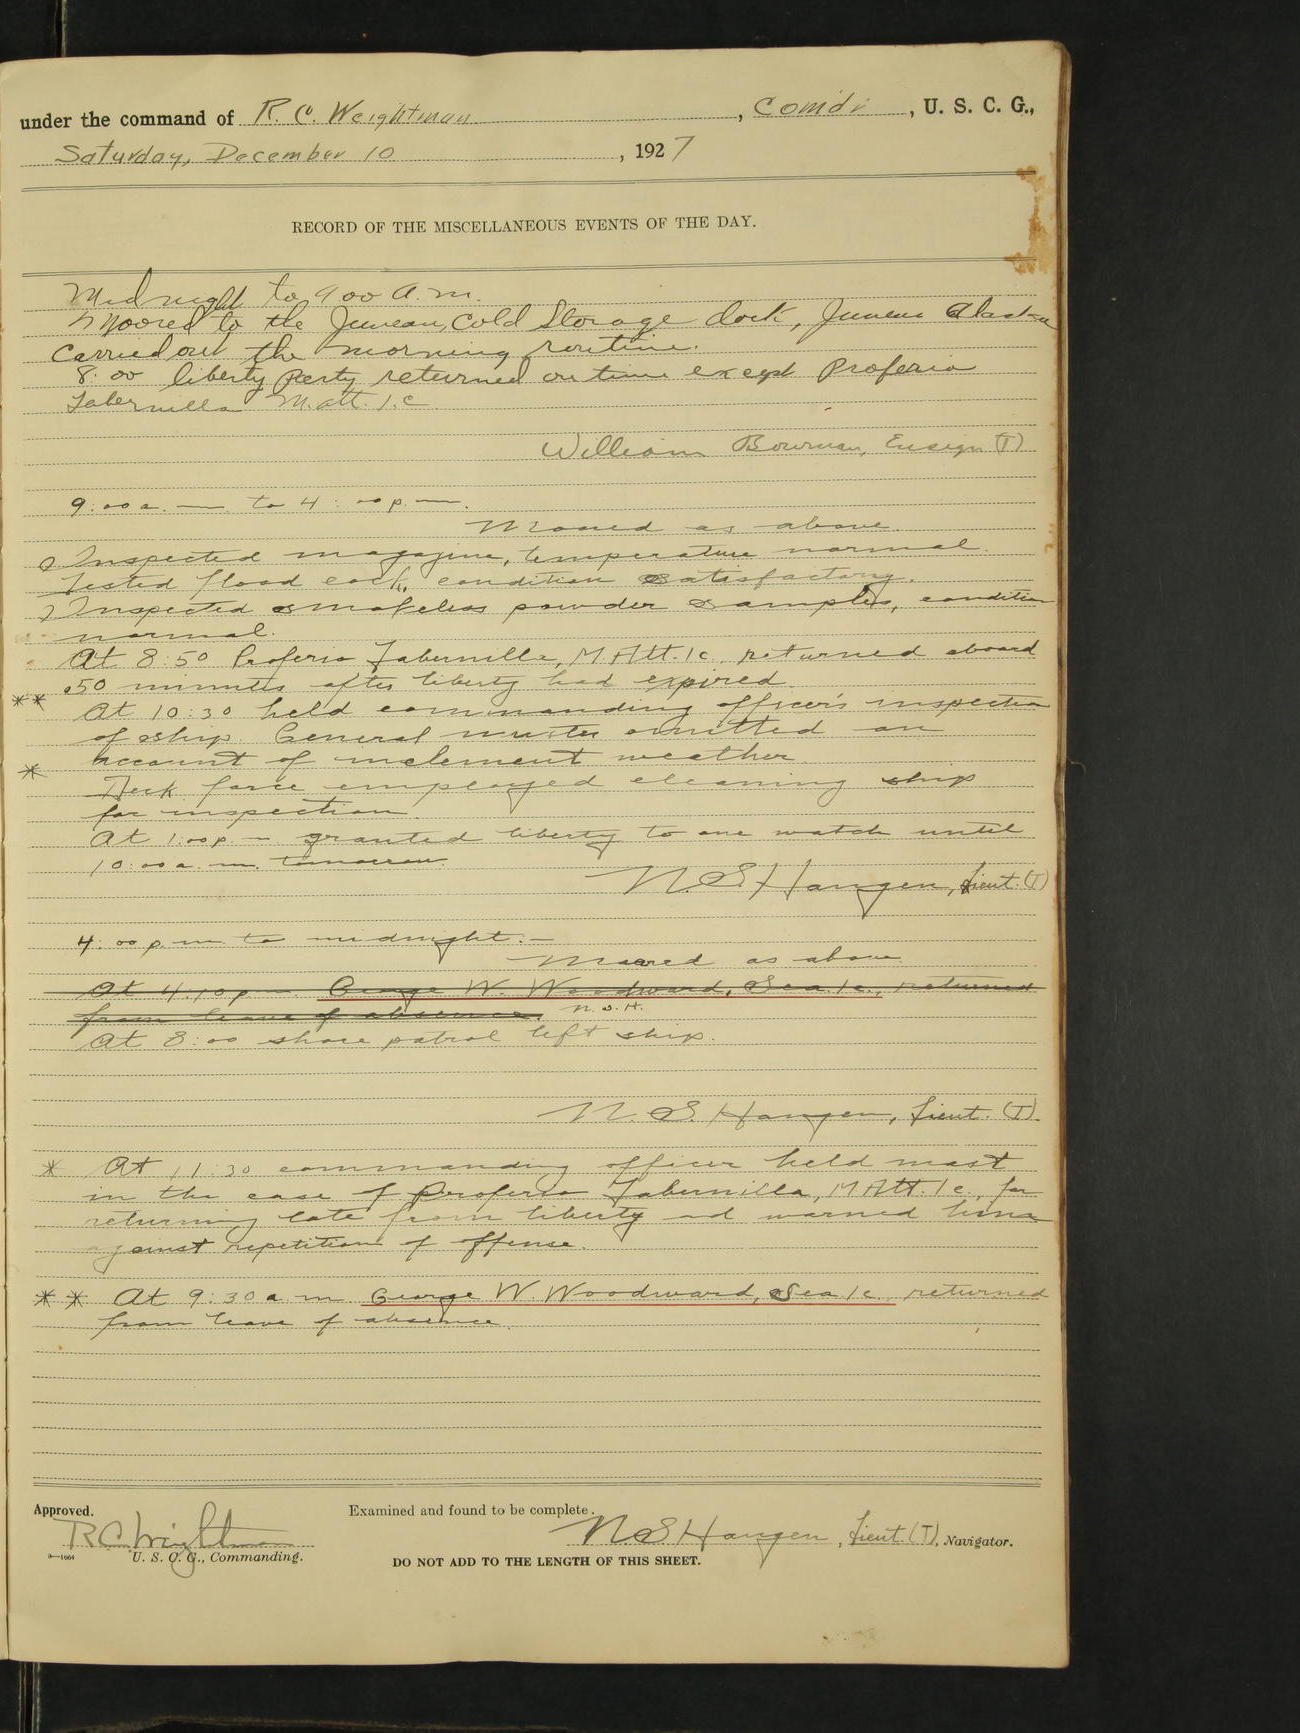 under the command of R. C. Weightman, Comdr, U. S. C. G.,
Saturday, December 10, 1927
RECORD OF THE MISCELLANEOUS EVENTS OF THE DAY.
Midnight to 9 00 a.m.
Moored to the Juneau, Cold Storage dock, Juneau Alaska
Carried out the morning routine.
8:00 liberty party returned on time except Proferio
Tabernilla M.att. 1.c
William Bowman, Ensign (T)
9:00 a.m. to 4:00 p.m.
Moored as above
Inspected magazine, temperature normal.
Tested flood cock, condition satisfactory.
Inspected smokeless powder samples, condition
normal.
At 8:50 Proferio Tabernilla, M.Att.1c. returned aboard
50 minutes after liberty had expired.
** At 10:30 held commanding officer's inspection
of ship. General muster omitted on
account of inclement weather
* Deck force employed cleaning ship
for inspection.
At 1:00 p.m. granted liberty to one watch until
10:00 a.m. tomorrow.
N. S. Haugen, Lieut. (T)
4:00 p.m. to midnight:-
Moored as above.
At 4:10 p.m. George W. Woodward, Sea.1c., returned
from leave of absence. N.S.H.
At 8:00 shore patrol left ship.
N. S. Haugen, Lieut. (T).
* At 11:30 commanding officer held mast
in the case of Proferio Tabernilla, M.Att.1c., for
returning late from liberty and warned him
against repetition of offense.
** At 9:30 a.m. George W. Woodward, Sea.1c. returned
from leave of absence.
Approved.
Examined and found to be complete.
R C Weightman
N. S. Haugen, Lieut. (T), Navigator.
U. S. C. G., Commanding.
DO NOT ADD TO THE LENGTH OF THIS SHEET.